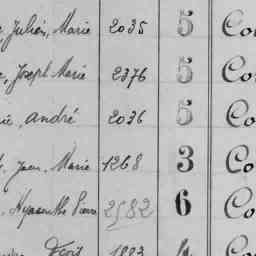 , Julien, Marie 2035 5 Co
, Joseph Marie 2376 5 Co
rie, andré 2036 5 Co
t, Jean, Marie 1268 3 Co
, Hyacinthe Pierre 2582 6 Co
1883